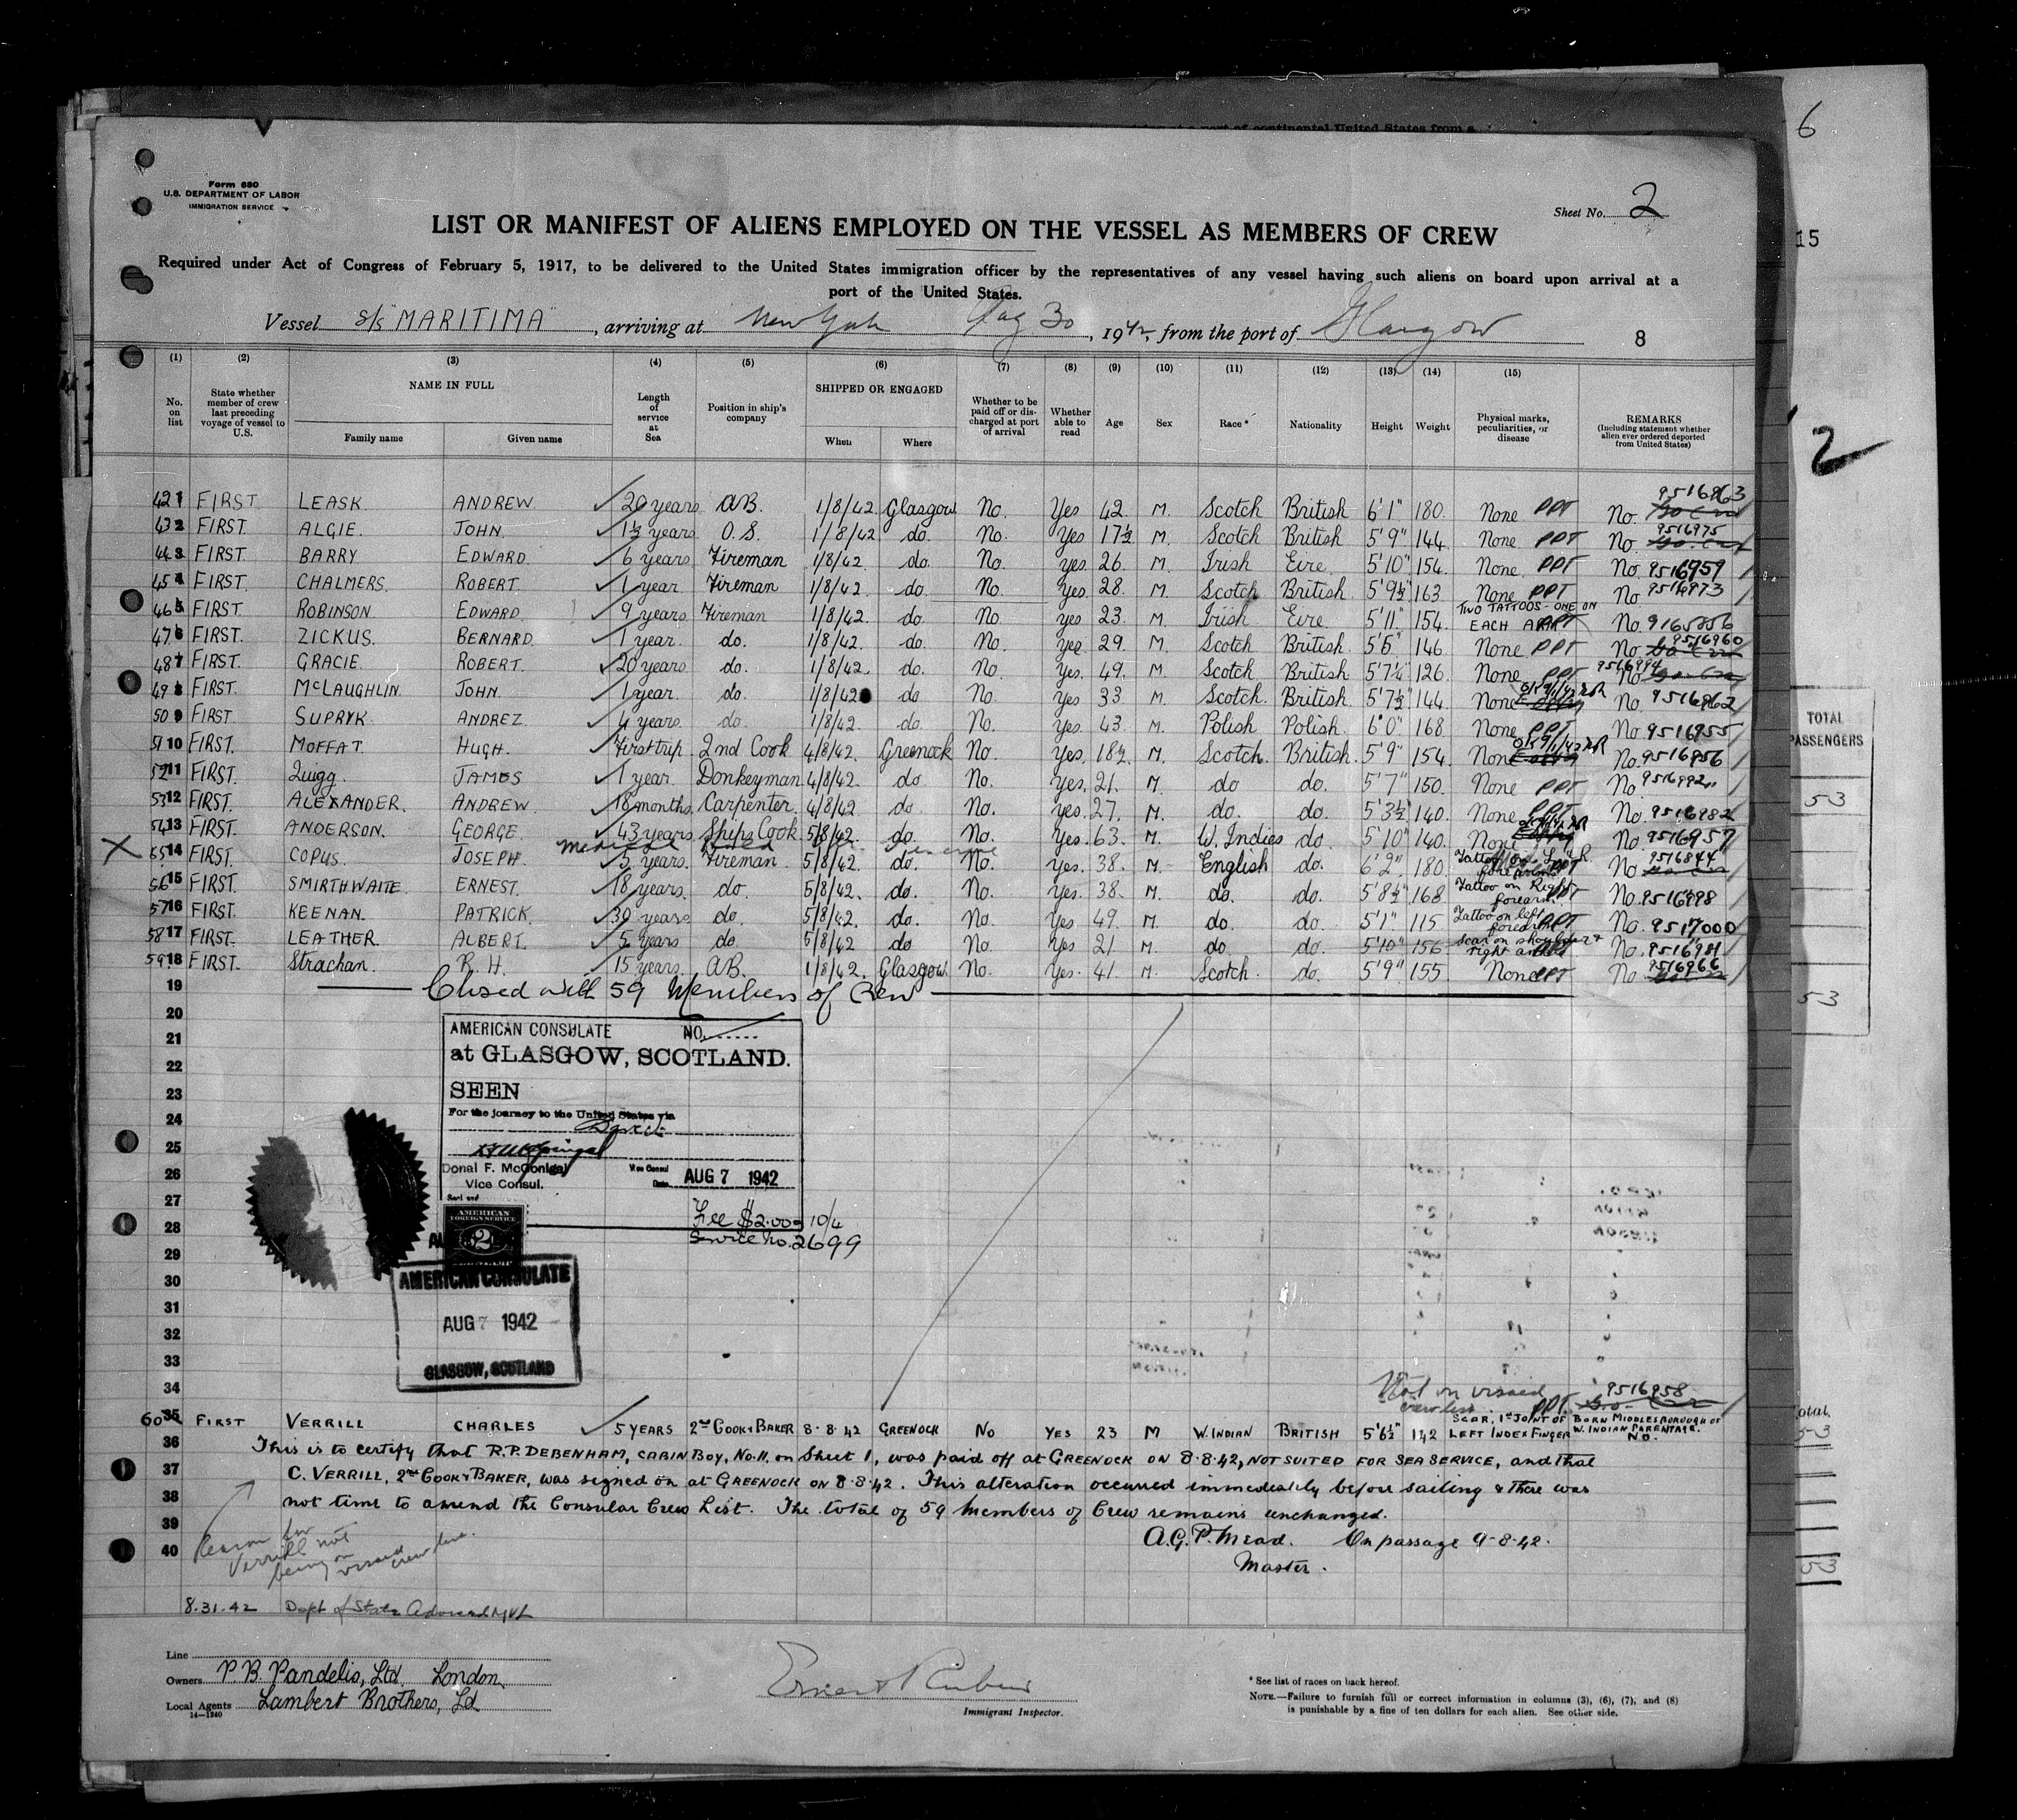 6
15
Form 680
U.S. DEPARTMENT OF LABOR
IMMIGRATION SERVICE
Sheet No. 2
LIST OR MANIFEST OF ALIENS EMPLOYED ON THE VESSEL AS MEMBERS OF CREW
Required under Act of Congress of February 5, 1917, to be delivered to the United States immigration officer by the representatives of any vessel having such aliens on board upon arrival at a
port of the United States.
Vessel S/S "MARITIMA", arriving at New York Aug 30, 1942, from the port of Glasgow
8
(1) (2) (3) (4) (5) (6) (7) (8) (9) (10) (11) (12) (13) (14) (15)
No. on list
State whether member of crew last preceding voyage of vessel to U.S.
NAME IN FULL
Family name Given name
Length of service at Sea
Position in ship's company
SHIPPED OR ENGAGED
When Where
Whether to be paid off or discharged at port of arrival
Whether able to read
Age
Sex
Race*
Nationality
Height
Weight
Physical marks, peculiarities, or disease
REMARKS
(Including statement whether alien ever ordered deported from United States)
2
42 1 FIRST LEASK ANDREW 20 years A.B. 1/8/42 Glasgow No. Yes 42. M. Scotch British 6'1" 180. None PPT No. 9516963
43 2 FIRST. ALGIE. JOHN. 1½ years O.S. 1/8/42 do. No. Yes 17½ M. Scotch British 5'9" 144. None PPT No. 9516975
44 3 FIRST. BARRY EDWARD. 6 years Fireman 1/8/42. do. No. yes. 26. M. Irish Eire. 5'10" 154. None. PPT No. 9516959
45 4 FIRST. CHALMERS. ROBERT. 1 year Fireman 1/8/42. do. No. Yes. 28. M. Scotch British. 5'9½" 163. None PPT No. 9516973
46 5 FIRST. ROBINSON. EDWARD. 9 years Fireman 1/8/42. do. No. yes 23. M. Irish Eire. 5'11" 154. TWO TATTOOS - ONE ON EACH ARM PPT No.
47 6 FIRST. ZICKUS. BERNARD. 1 year. do. 1/8/42. do. No. yes. 29. M. Scotch British. 5'5" 146 None PPT No. 9516960
48 7 FIRST. GRACIE. ROBERT. 20 years do. 1/8/42. do. No. Yes. 49. M. Scotch British 5'7¼" 126 None PPT No. 9516994
49 8 FIRST. McLAUGHLIN. JOHN. 1 year. do. 1/8/42 do No. Yes 33 M. Scotch. British. 5'7½" 144 None No. 9516962
50 9 FIRST. SUPRYK. ANDREZ. 4 years. do. 1/8/42. do. No. Yes. 43. M. Polish Polish. 6'0" 168. None PPT No. 9516955
51 10 FIRST. MOFFAT. HUGH. First trip. 2nd Cook 4/8/42. Greenock No. Yes. 18½ M. Scotch. British. 5'9" 154. None No. 9516956
52 11 FIRST. Quigg. JAMES 1 year Donkeyman. 4/8/42. do. No. Yes. 21. M. do do. 5'7" 150. None PPT No 9516992
53 12 FIRST. ALEXANDER. ANDREW. 18 months. Carpenter. 4/8/42 do. No. yes. 27. M. do. do. 5'3½" 140. None PPT No. 9516982
54 13 FIRST. ANDERSON. GEORGE. 43 years. Ships Cook. 5/8/42. do. No. Yes. 63. M. W. Indies do. 5'10" 140. None No 9516957
X 55 14 FIRST. COPUS. JOSEPH. 5 years. Fireman. 5/8/42. do. No. Yes. 38. M. English do. 6'2" 180. No 9516844
56 15 FIRST. SMIRTHWAITE. ERNEST. 18 years. do. 5/8/42. do. No. Yes. 38. M. do. do. 5'8½" 168. Tattoo on Right forearm. PPT No. 9516998
57 16 FIRST. KEENAN. PATRICK. 30 years do. 5/8/42. do. No. Yes 49. M. do. do. 5'1" 115 Tattoo on left forearm. PPT No. 9517000
58 17 FIRST. LEATHER. ALBERT. 5 years do. 5/8/42 do. No. Yes 21. M. do. do. 5'10" 156. Scar on shoulder + right No. 9516981
59 18 FIRST. Strachan. R. H. 15 years. A.B. 1/8/42. Glasgow. No. Yes. 41. M. Scotch. do. 5'9" 155 None PPT No. 9516966
19 Closed with 59 Members of Crew
20
21
22
23
24
25
26
27
28
29
30
31
32
33
34
AMERICAN CONSULATE NO.
at GLASGOW, SCOTLAND.
SEEN
For the journey to the United States via
Direct
Donal F. McGonigal
Vice Consul.
Vice Consul
Date AUG 7 1942
Fee $2.00 = 10/4
Service No. 2699
AMERICAN
FOREIGN SERVICE
$2
AMERICAN CONSULATE
AUG 7 1942
GLASGOW, SCOTLAND
Not on visaed crew list. PPT. 9516958
60 35 FIRST VERRILL CHARLES 5 YEARS 2nd COOK & BAKER 8.8.42 GREENOCK No YES 23 M W. INDIAN BRITISH 5'6½" 142 SCAR, 1st JOINT OF LEFT INDEX FINGER BORN MIDDLESBOROUGH OF W. INDIAN PARENTAGE. NO.
36 This is to certify that R.P. DEBENHAM, CABIN BOY, No.11, on Sheet 1, was paid off at GREENOCK ON 8.8.42, NOT SUITED FOR SEA SERVICE, and that
37 C. VERRILL, 2nd COOK & BAKER, was signed on at GREENOCK ON 8.8.42. This alteration occurred immediately before sailing & there was
38 not time to amend the Consular Crew List. The total of 59 Members of Crew remains unchanged.
39 A.G.P. Mead. On passage 9-8-42.
40 Master.
Reason for
Verrill not
being on
visaed crew list.
8.31.42 Dept of State Advised
Line
Owners P. B. Pandelis, Ltd. London.
Local Agents Lambert Brothers, Ld
14—1240
Ernest Rubin
Immigrant Inspector.
* See list of races on back hereof.
NOTE.—Failure to furnish full or correct information in columns (3), (6), (7), and (8)
is punishable by a fine of ten dollars for each alien. See other side.
TOTAL
PASSENGERS
53
53
Total
53
53